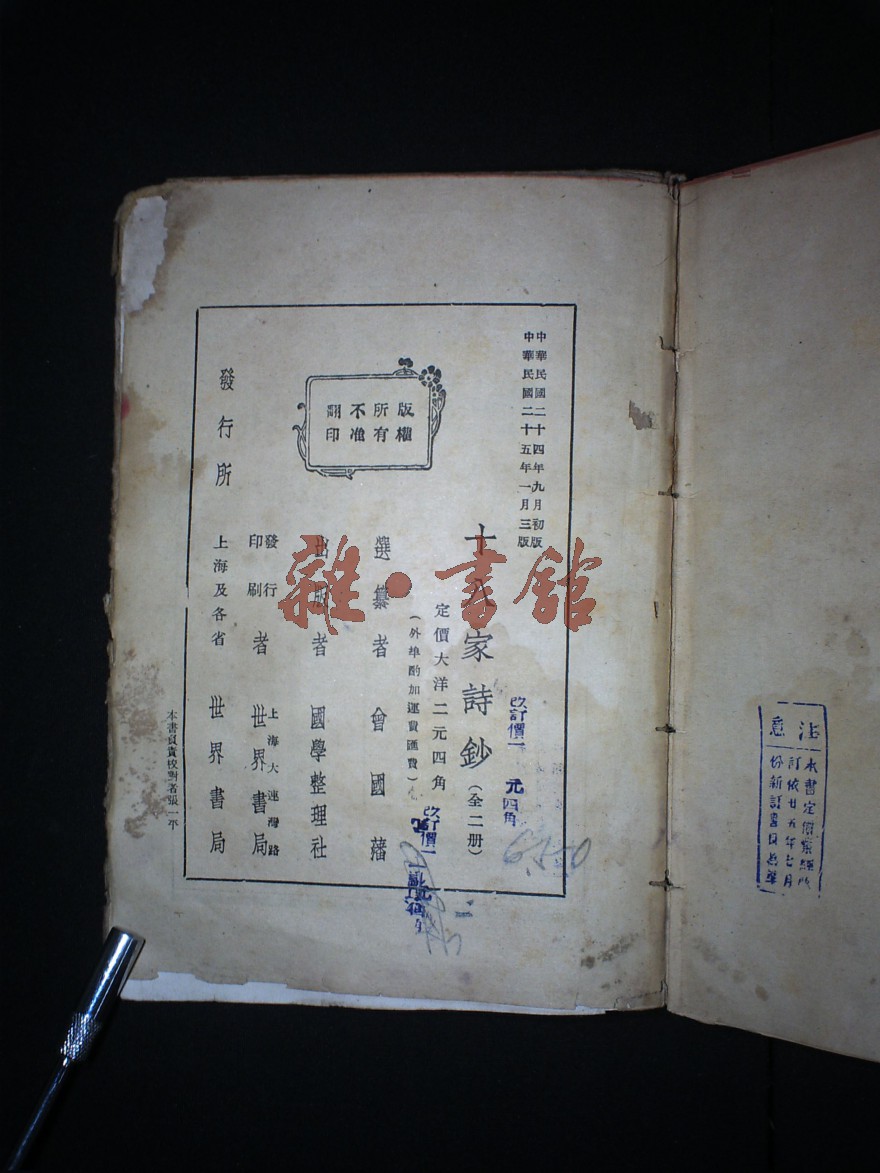 中華民國二十四年九月初版
中華民國二十五年一月三版
十八家詩鈔(全二册)
定價大洋二元四角
(外埠酌加運費匯費)
選纂者 曾國藩
出版者 國學整理社
發行
印刷
者 世界書局
上海大連灣路
發行所 上海及各省 世界書局
版權
所有
不准
翻印
本書負責校對者張一平
改訂價一元四角
改訂價一
6.50
雜·書館
注意
本書定價業經改
訂依廿五年七月
份新訂書目為準